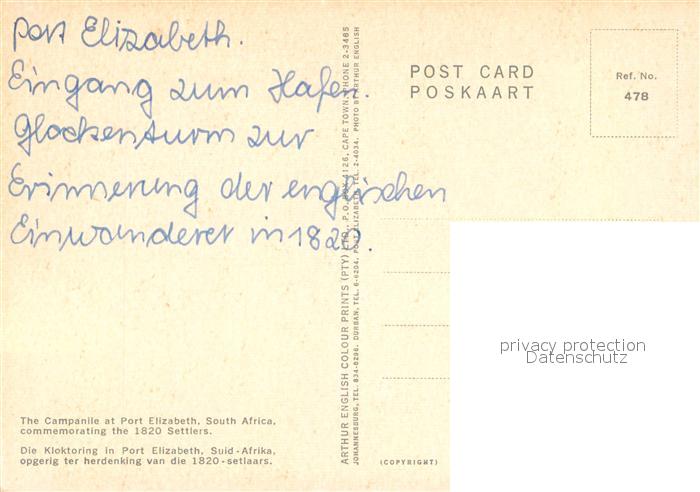 Port Elizabeth.
Eingang zum Hafen.
Glockenturm zur
Erinnerung der englischen
Einwanderer in 1820.
The Campanile at Port Elizabeth, South Africa,
commemorating the 1820 Settlers.
Die Kloktoring in Port Elizabeth, Suid-Afrika,
opgerig ter herdenking van die 1820-setlaars.
ARTHUR ENGLISH COLOUR PRINTS (PTY) LTD., P.O. BOX 4126, CAPE TOWN, PHONE 2-3465
JOHANNESBURG, TEL. 834-6296. DURBAN, TEL. 6-6204. PORT ELIZABETH TEL. 2-4034. PHOTO BY ARTHUR ENGLISH
POST CARD
POSKAART
Ref. No.
478
privacy protection
Datenschutz
(COPYRIGHT)